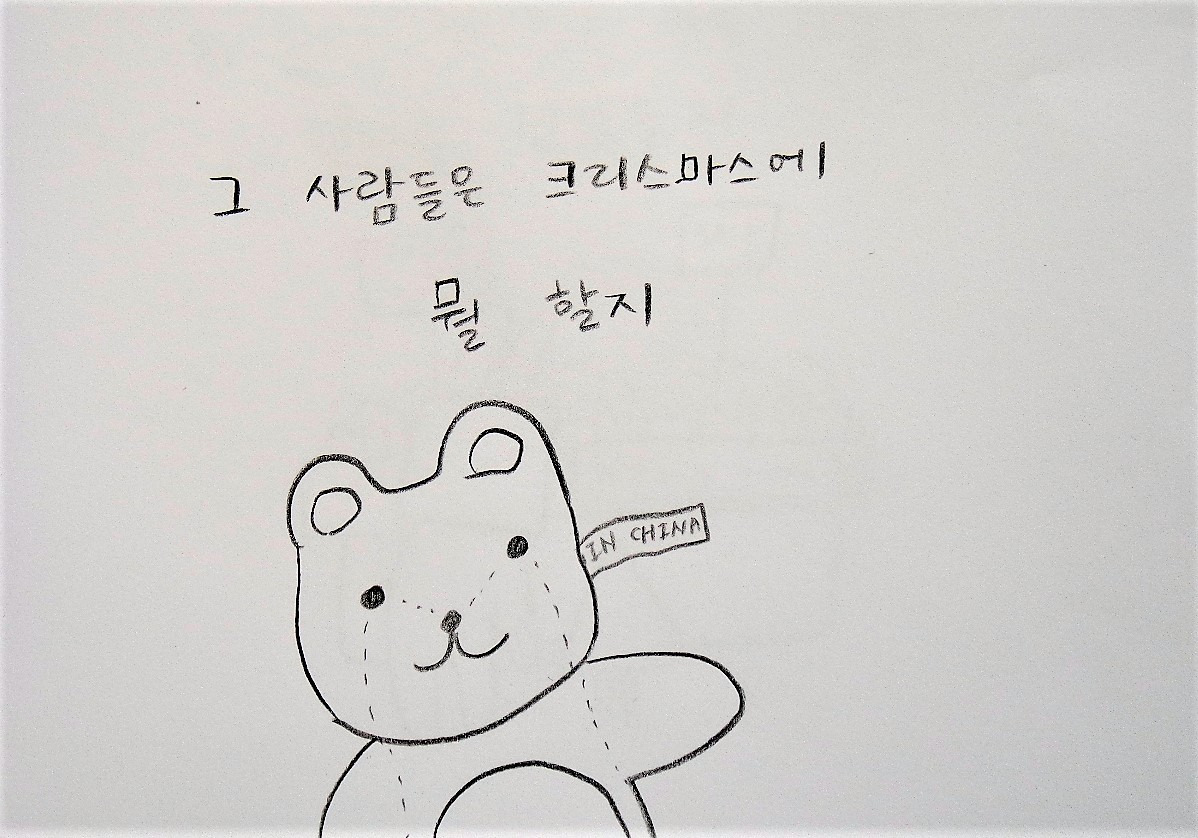 그 사람들은 크리스마스에
뭘 할지
IN CHINA